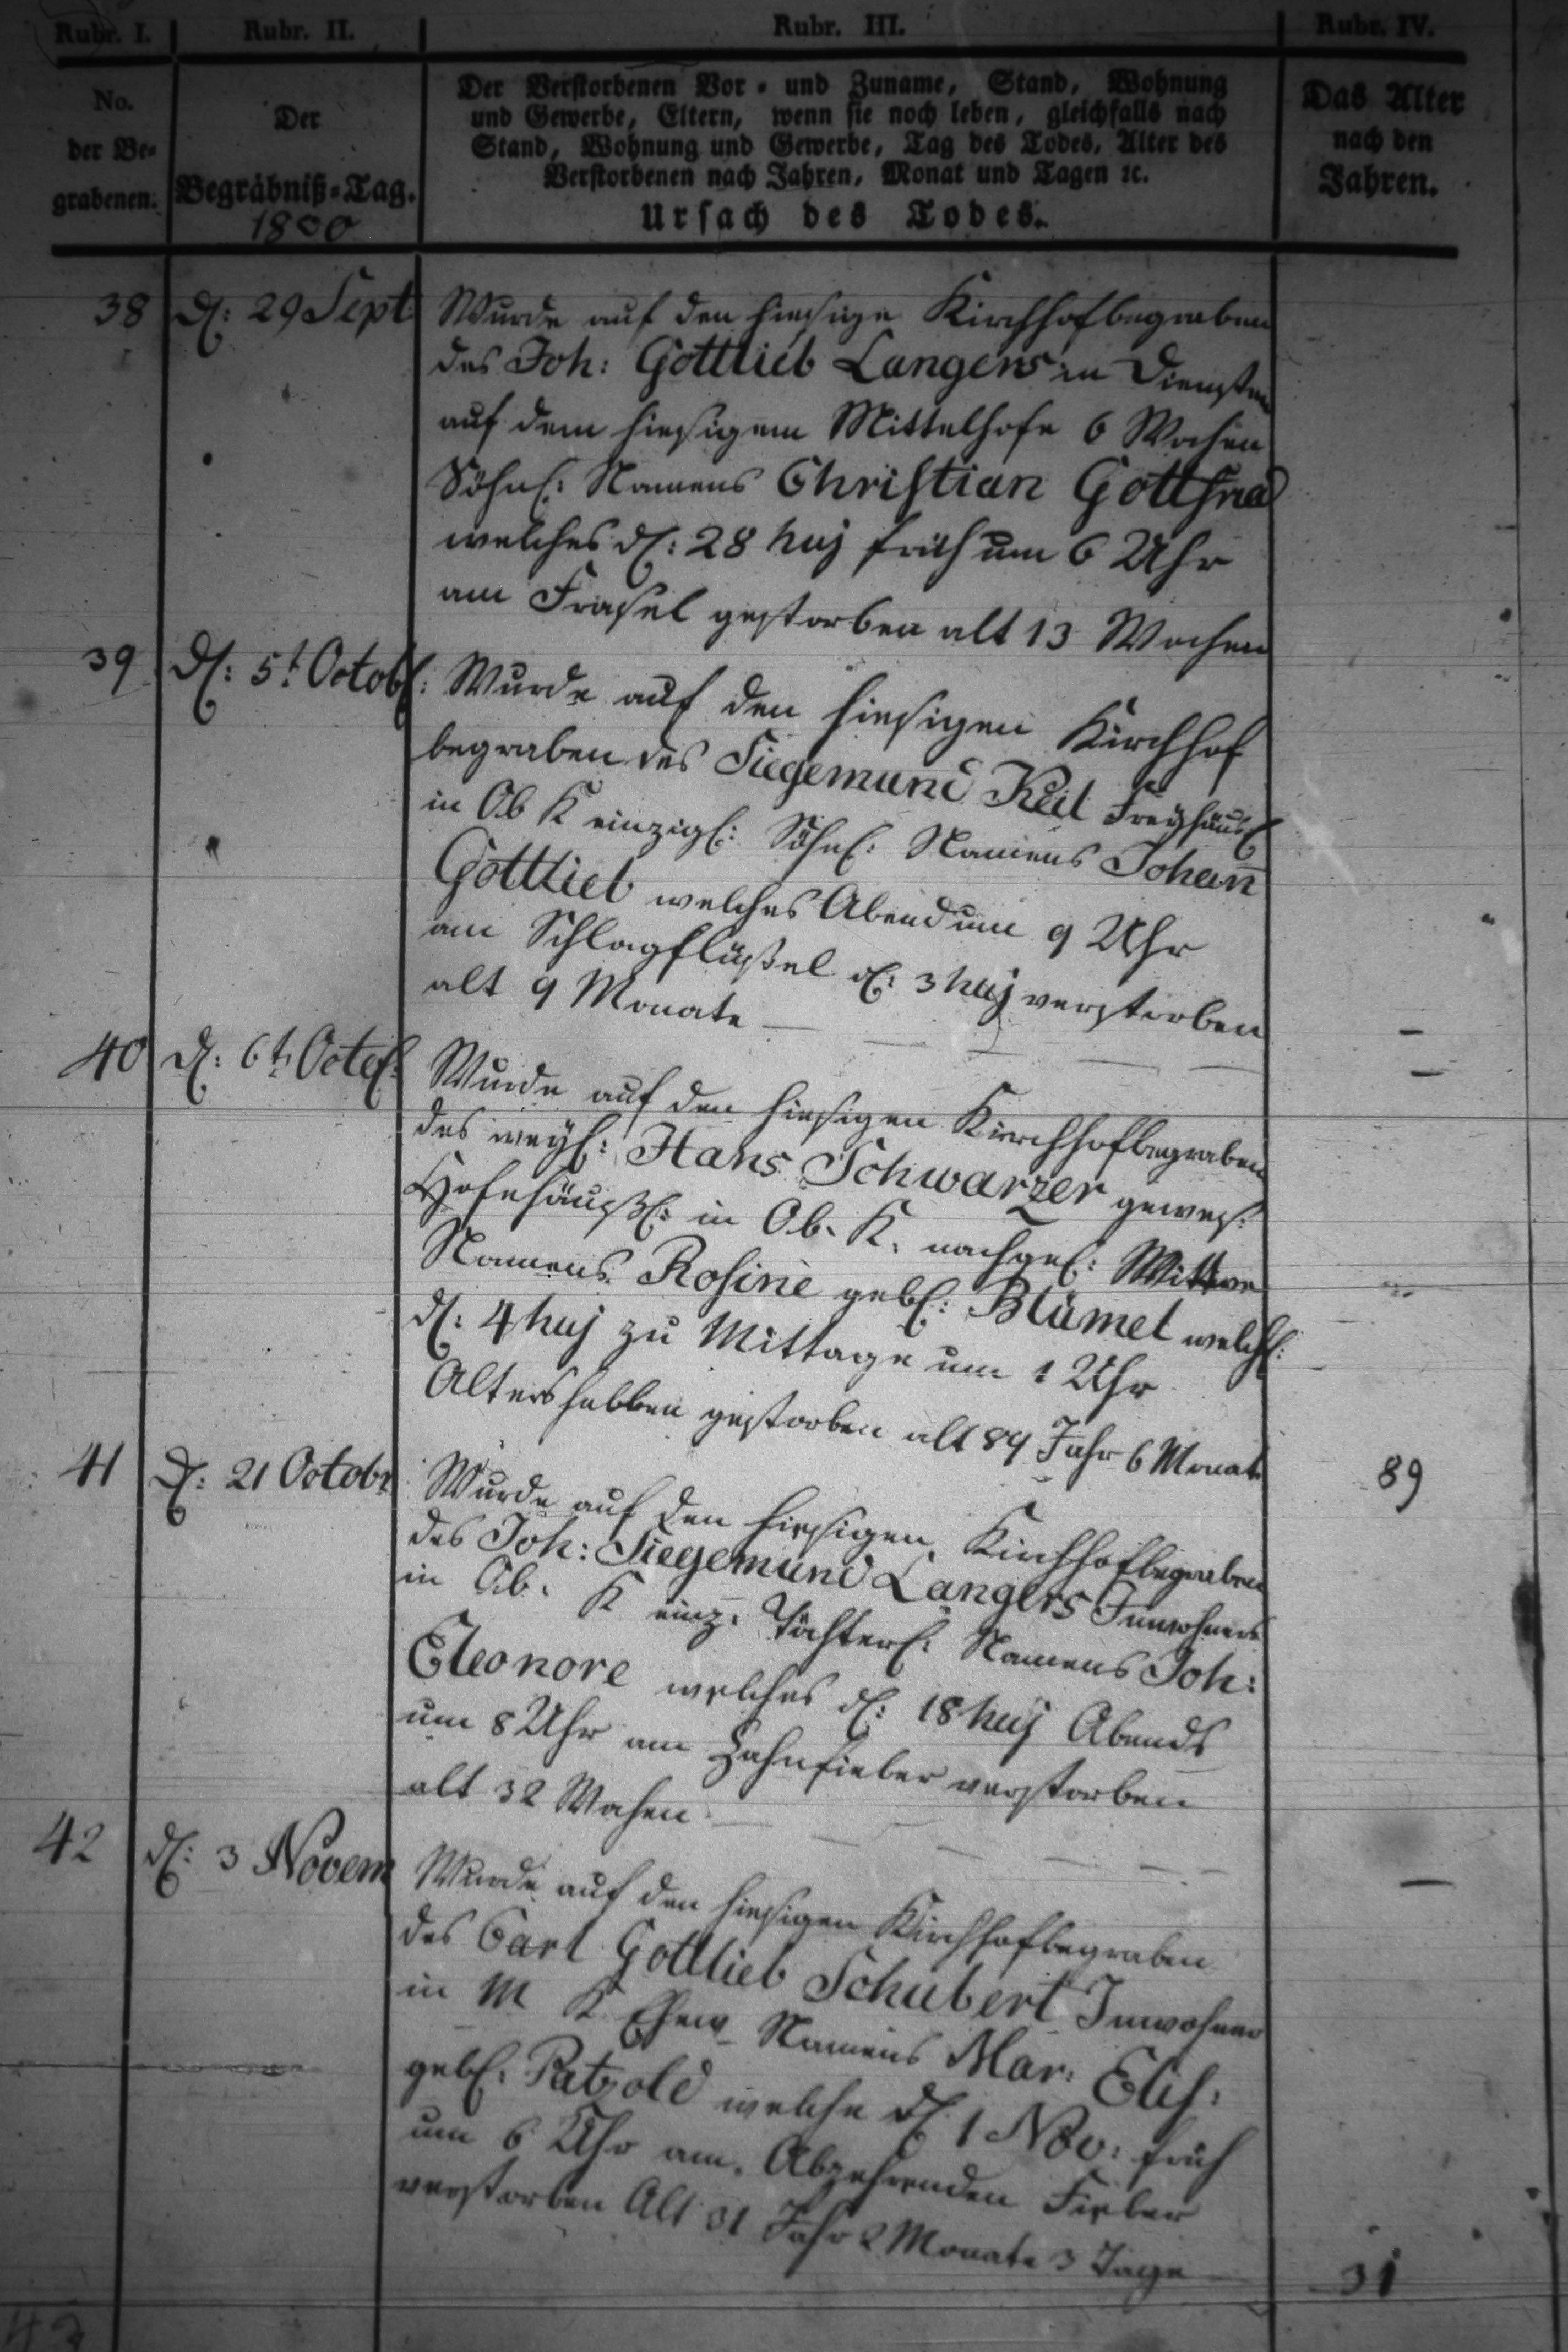 Rubr. I.
Rubr. II.
Rubr. III.
Rubr. IV.
No.
der Be-
grabenen.
Der
Begräbniß-Tag.
1800
Der Verstorbenen Vor- und Zuname, Stand, Wohnung
und Gewerbe, Eltern, wenn sie noch leben, gleichfalls nach
Stand, Wohnung und Gewerbe, Tag des Todes, Alter des
Verstorbenen nach Jahren, Monat und Tagen ꝛc.
Ursach des Todes.
Das Alter
nach den
Jahren.
38
d: 29 Sept
Wurde auf den hiesige Kirchhof begraben
des Joh: Gottlieb Langers in Diensten
auf dem hiesigem Mittelhofe 6 Wochen
Söhnl: Namens Christian Gottfried
welches d: 28 huj früh um 6 Uhr
am gestorben alt 13 Wochen
39
d: 5t Octobr:
Wurde auf den hiesigen Kirchhof
begraben des Siegemund Keil Freyhäusl
in Ob K einzigl: Söhnl: Namens Johan̄
Gottlieb welches Abend um 9 Uhr
am Schlagflüßel d: 3 huj verstorben
alt 9 Monate —
—
40
d: 6t Octbr:
Wurde auf den hiesigen Kirchhof begraben
des weyl: Hans Schwarzer gewes:
Hofehäußl: in Ob. K. nachgel: Wittwe
Namens Rosine gebl: Blümel welche:
d: 4 huj zu Mittage um 1 Uhr
Altershalben gestorben alt 89 Jahr 6 Monat
89
41
d: 21 Octobr
Wurde auf den hiesigen Kirchhof begraben
des Joh: Siegemund Langers Innwohners
in Ob. K einz. Töchterl: Namens Joh:
Eleonore welches d: 18 huj Abends
um 8 Uhr am Zahnfieber verstorben
alt 32 Wochen —
—
42
d: 3 Novem
Wurde auf den hiesigen Kirchhof begraben
des Carl Gottlieb Schubert Innwohner
in M K Ehew Namens Mar: Elis:
gebl. Patzold welche d: 1 Nov: früh
um 6 Uhr am Abzehrenden Fieber
verstorben Alt 31 Jahr 2 Monate 3 Tage
31